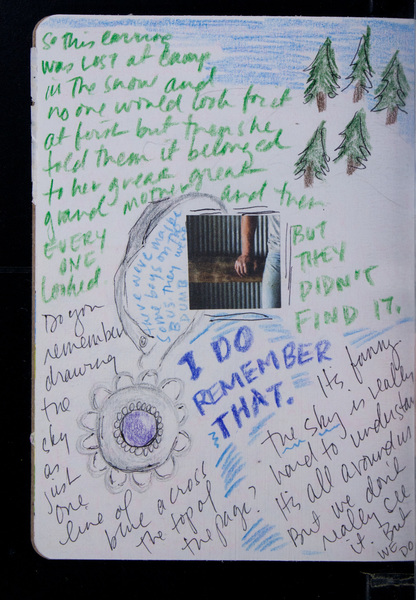 So this earring
was lost at camp
in the snow and
no one would look for it
at first but then she
told them it belonged
to her great great
grand mother and then
EVERY
ONE
Looked.
BUT
THEY
DIDN'T
FIND IT.
there were maybe
some boys on the
BUS they were
Do you
remember
drawing
the
sky
as
just
one
line of
blue across
the top of
the page?
I DO
REMEMBER
THAT.
Its funny
the sky is really
hard to understand
Its all around us
But we don't
really see
it. But
WE DO